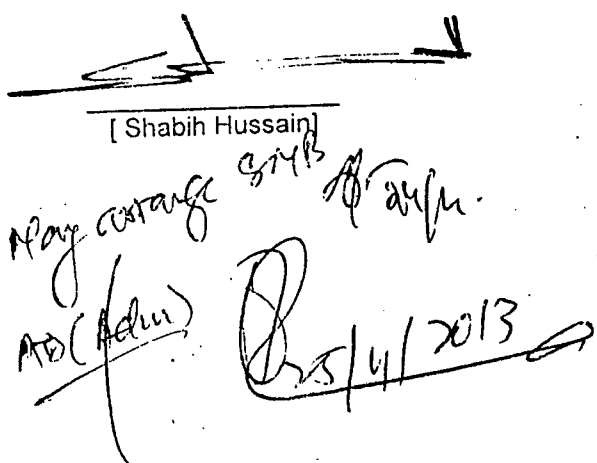 [ Shabih Hussain]
May arrange
AD (Adm)
25/4/2013